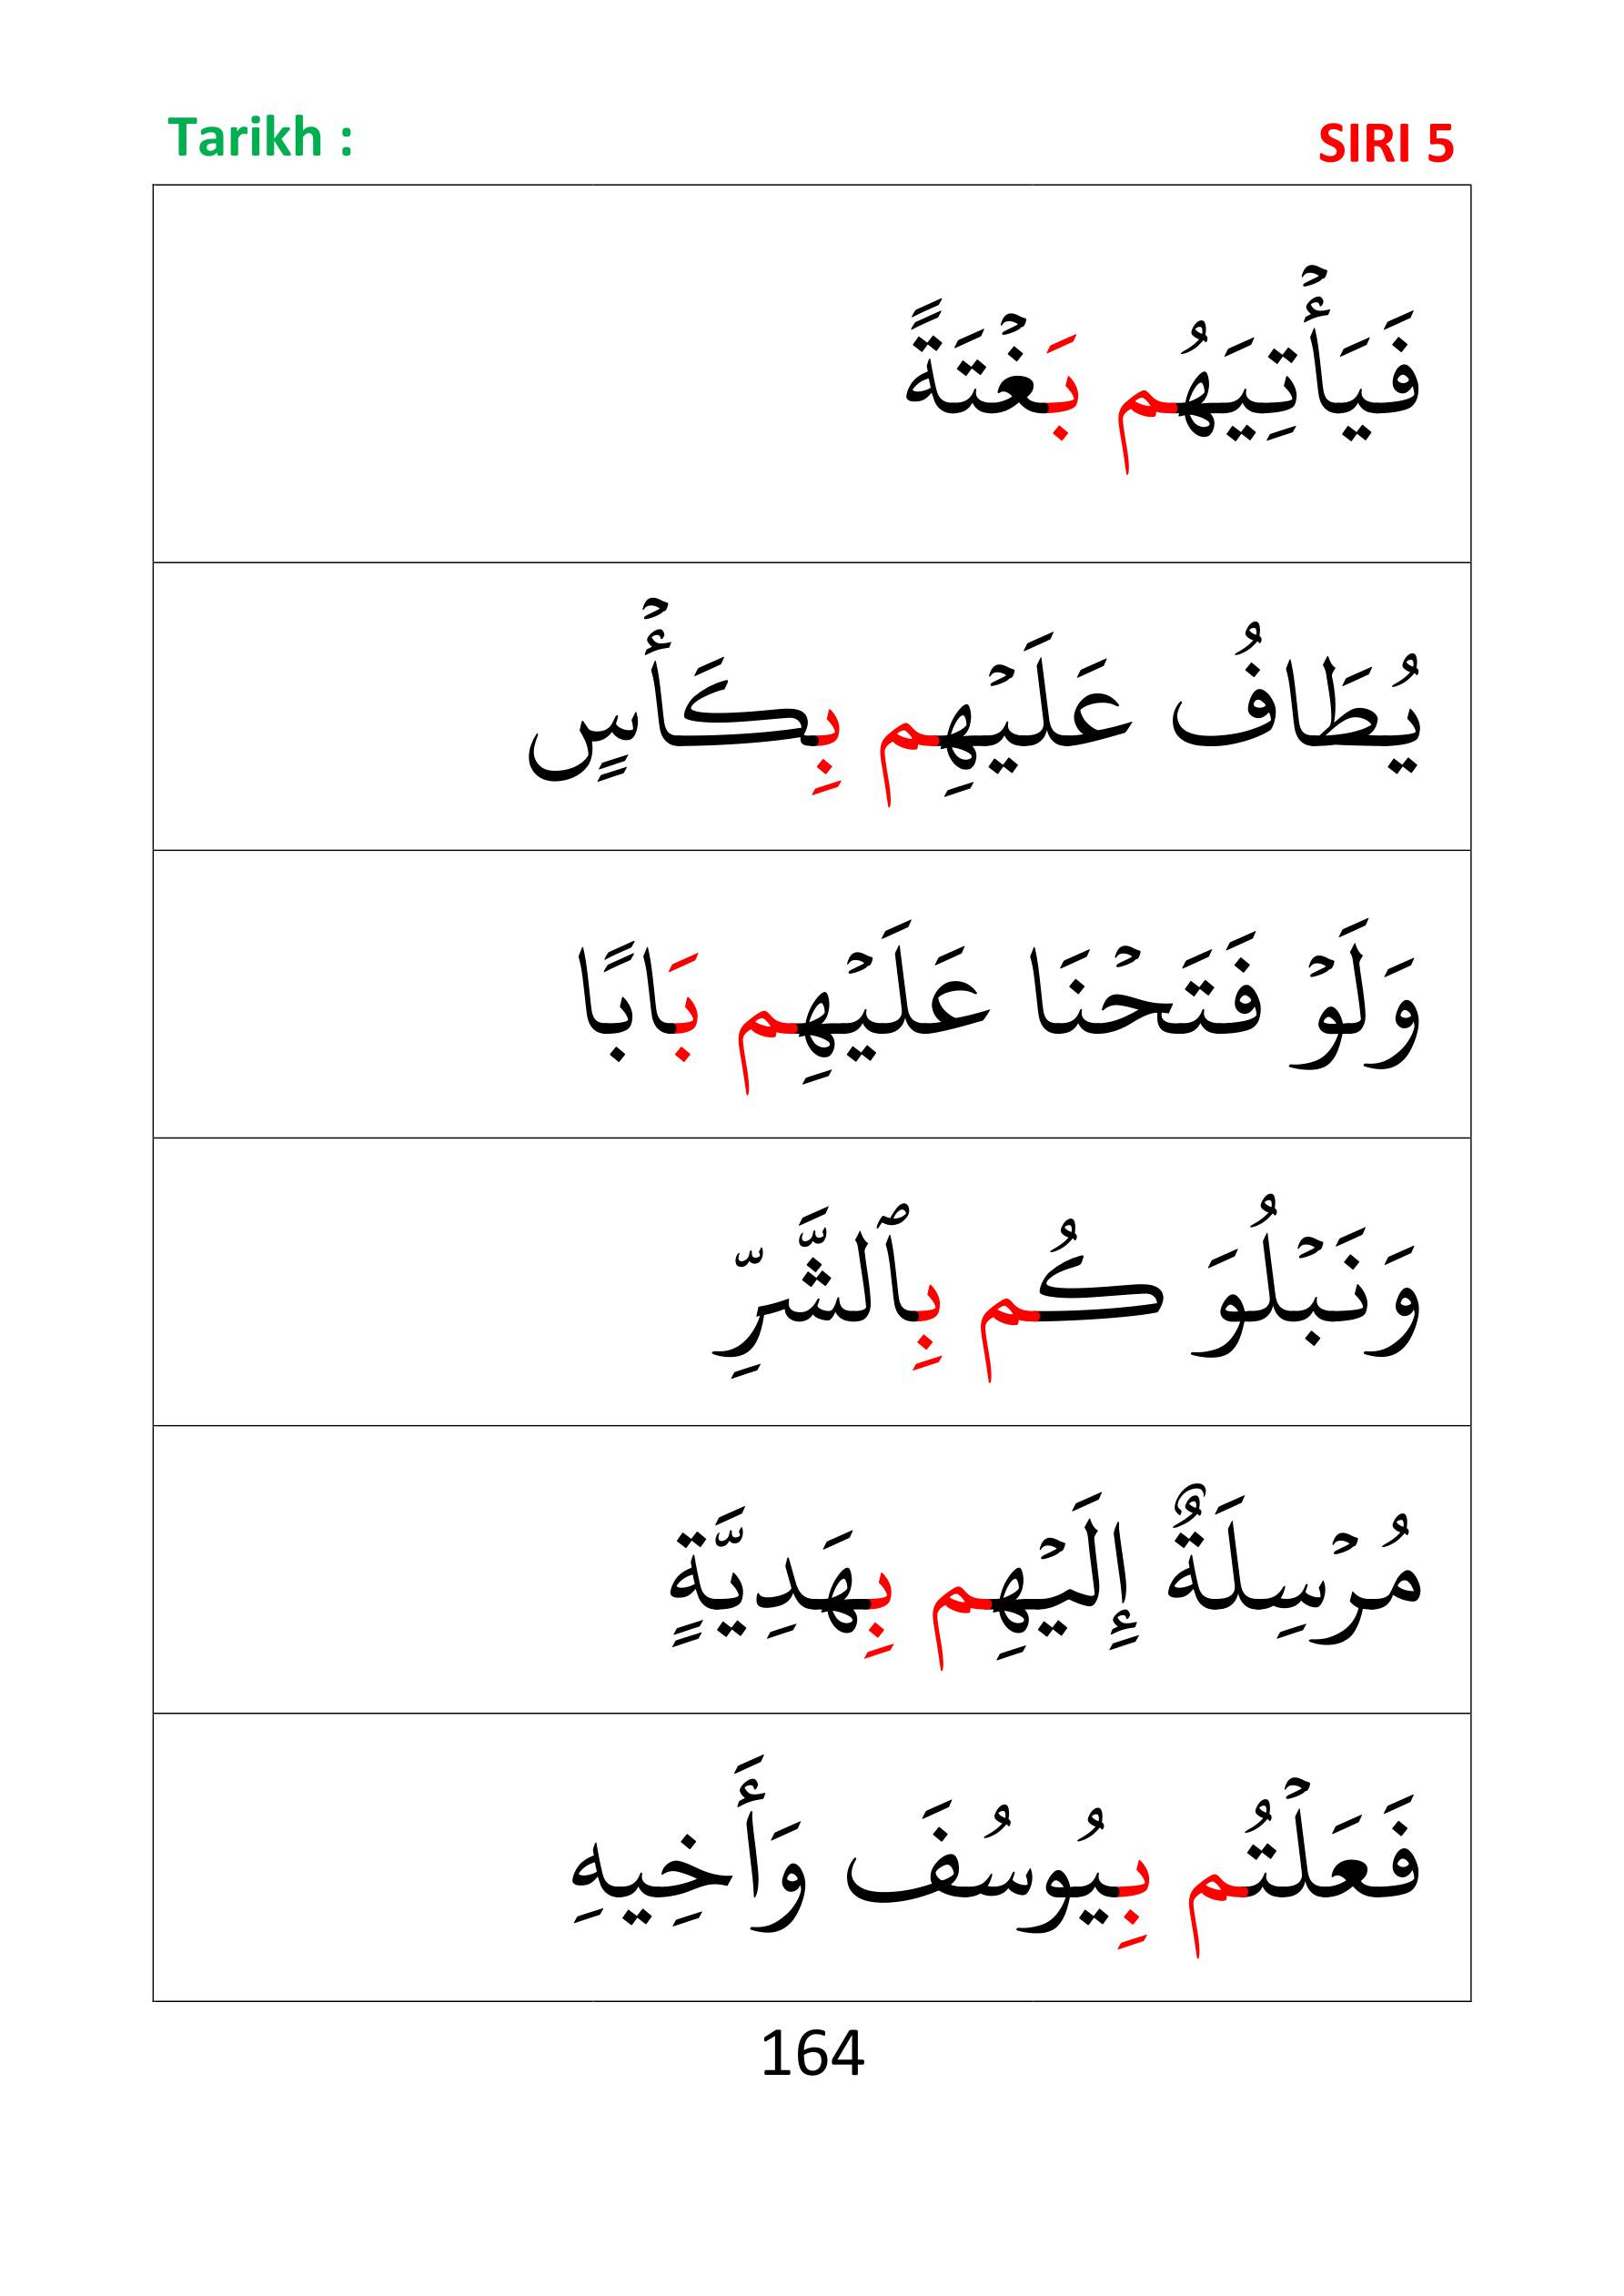 Tarikh :
SIRI 5
فَيَأۡتِيَهُم بَغۡتَةً
يُطَافُ عَلَيۡهِم بِكَأۡسٍ
وَلَوۡ فَتَحۡنَا عَلَيۡهِم بَابًا
وَنَبۡلُوَ كُم بِٱلشَّرِّ
مُرۡسِلَةٌ إِلَيۡهِم بِهَدِيَّةٍ
فَعَلۡتُم بِيُوسُفَ وَأَخِيهِ
164